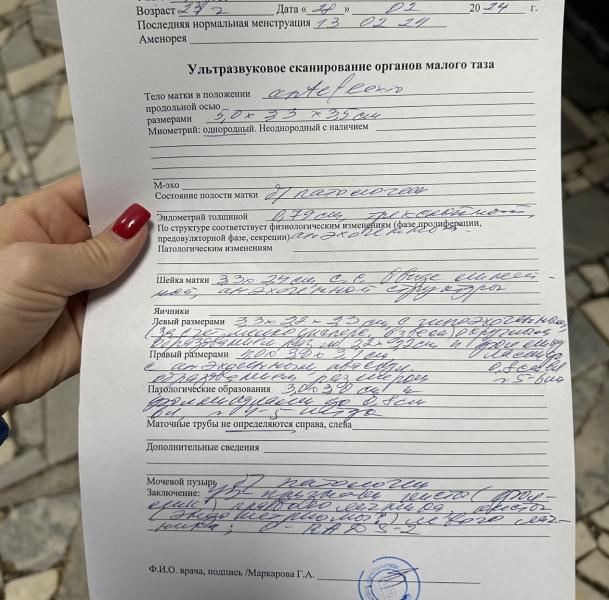 Возраст 23 г Дата « 28 » 02 2024 г.
Последняя нормальная менструация 13 02 24
Аменорея
Ультразвуковое сканирование органов малого таза
Тело матки в положении anteflexio
продольной осью
размерами 5,0 х 3,3 х 3,5 см
Миометрий: однородный. Неоднородный с наличием
М-эхо
Состояние полости матки б/ патологии
Эндометрий толщиной 0,79 см, трехслойный,
По структуре соответствует физиологическим изменениям (фазе пролиферации,
предовуляторной фазе, секреции)
Патологическим изменениям
Шейка матки 33х24 мм, с
анэхогенной структуры
Яичники
Левый размерами
образованием 22х22 мм и
Правый размерами 40х39х37 мм 0,8 см
с анэхогенным
образованием размером n 5-6
Патологические образования 30х30 см и
до 0,8 см
n 4-5
Маточные трубы не определяются справа, слева
Дополнительные сведения
Мочевой пузырь б/ патологии
Заключение: Уз- признаки кисты
правого яичника, кисты
(эндометриомы?) левого яич-
ника; O-RADS-2
Ф.И.О. врача, подпись /Маркарова Г.А.